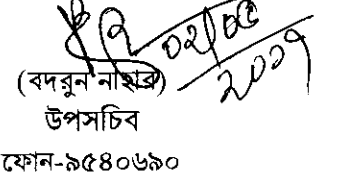 ০২/০৫
২০১৭
(বদরুন নাহার)
উপসচিব
ফোন-৯৫৪০৬৯০